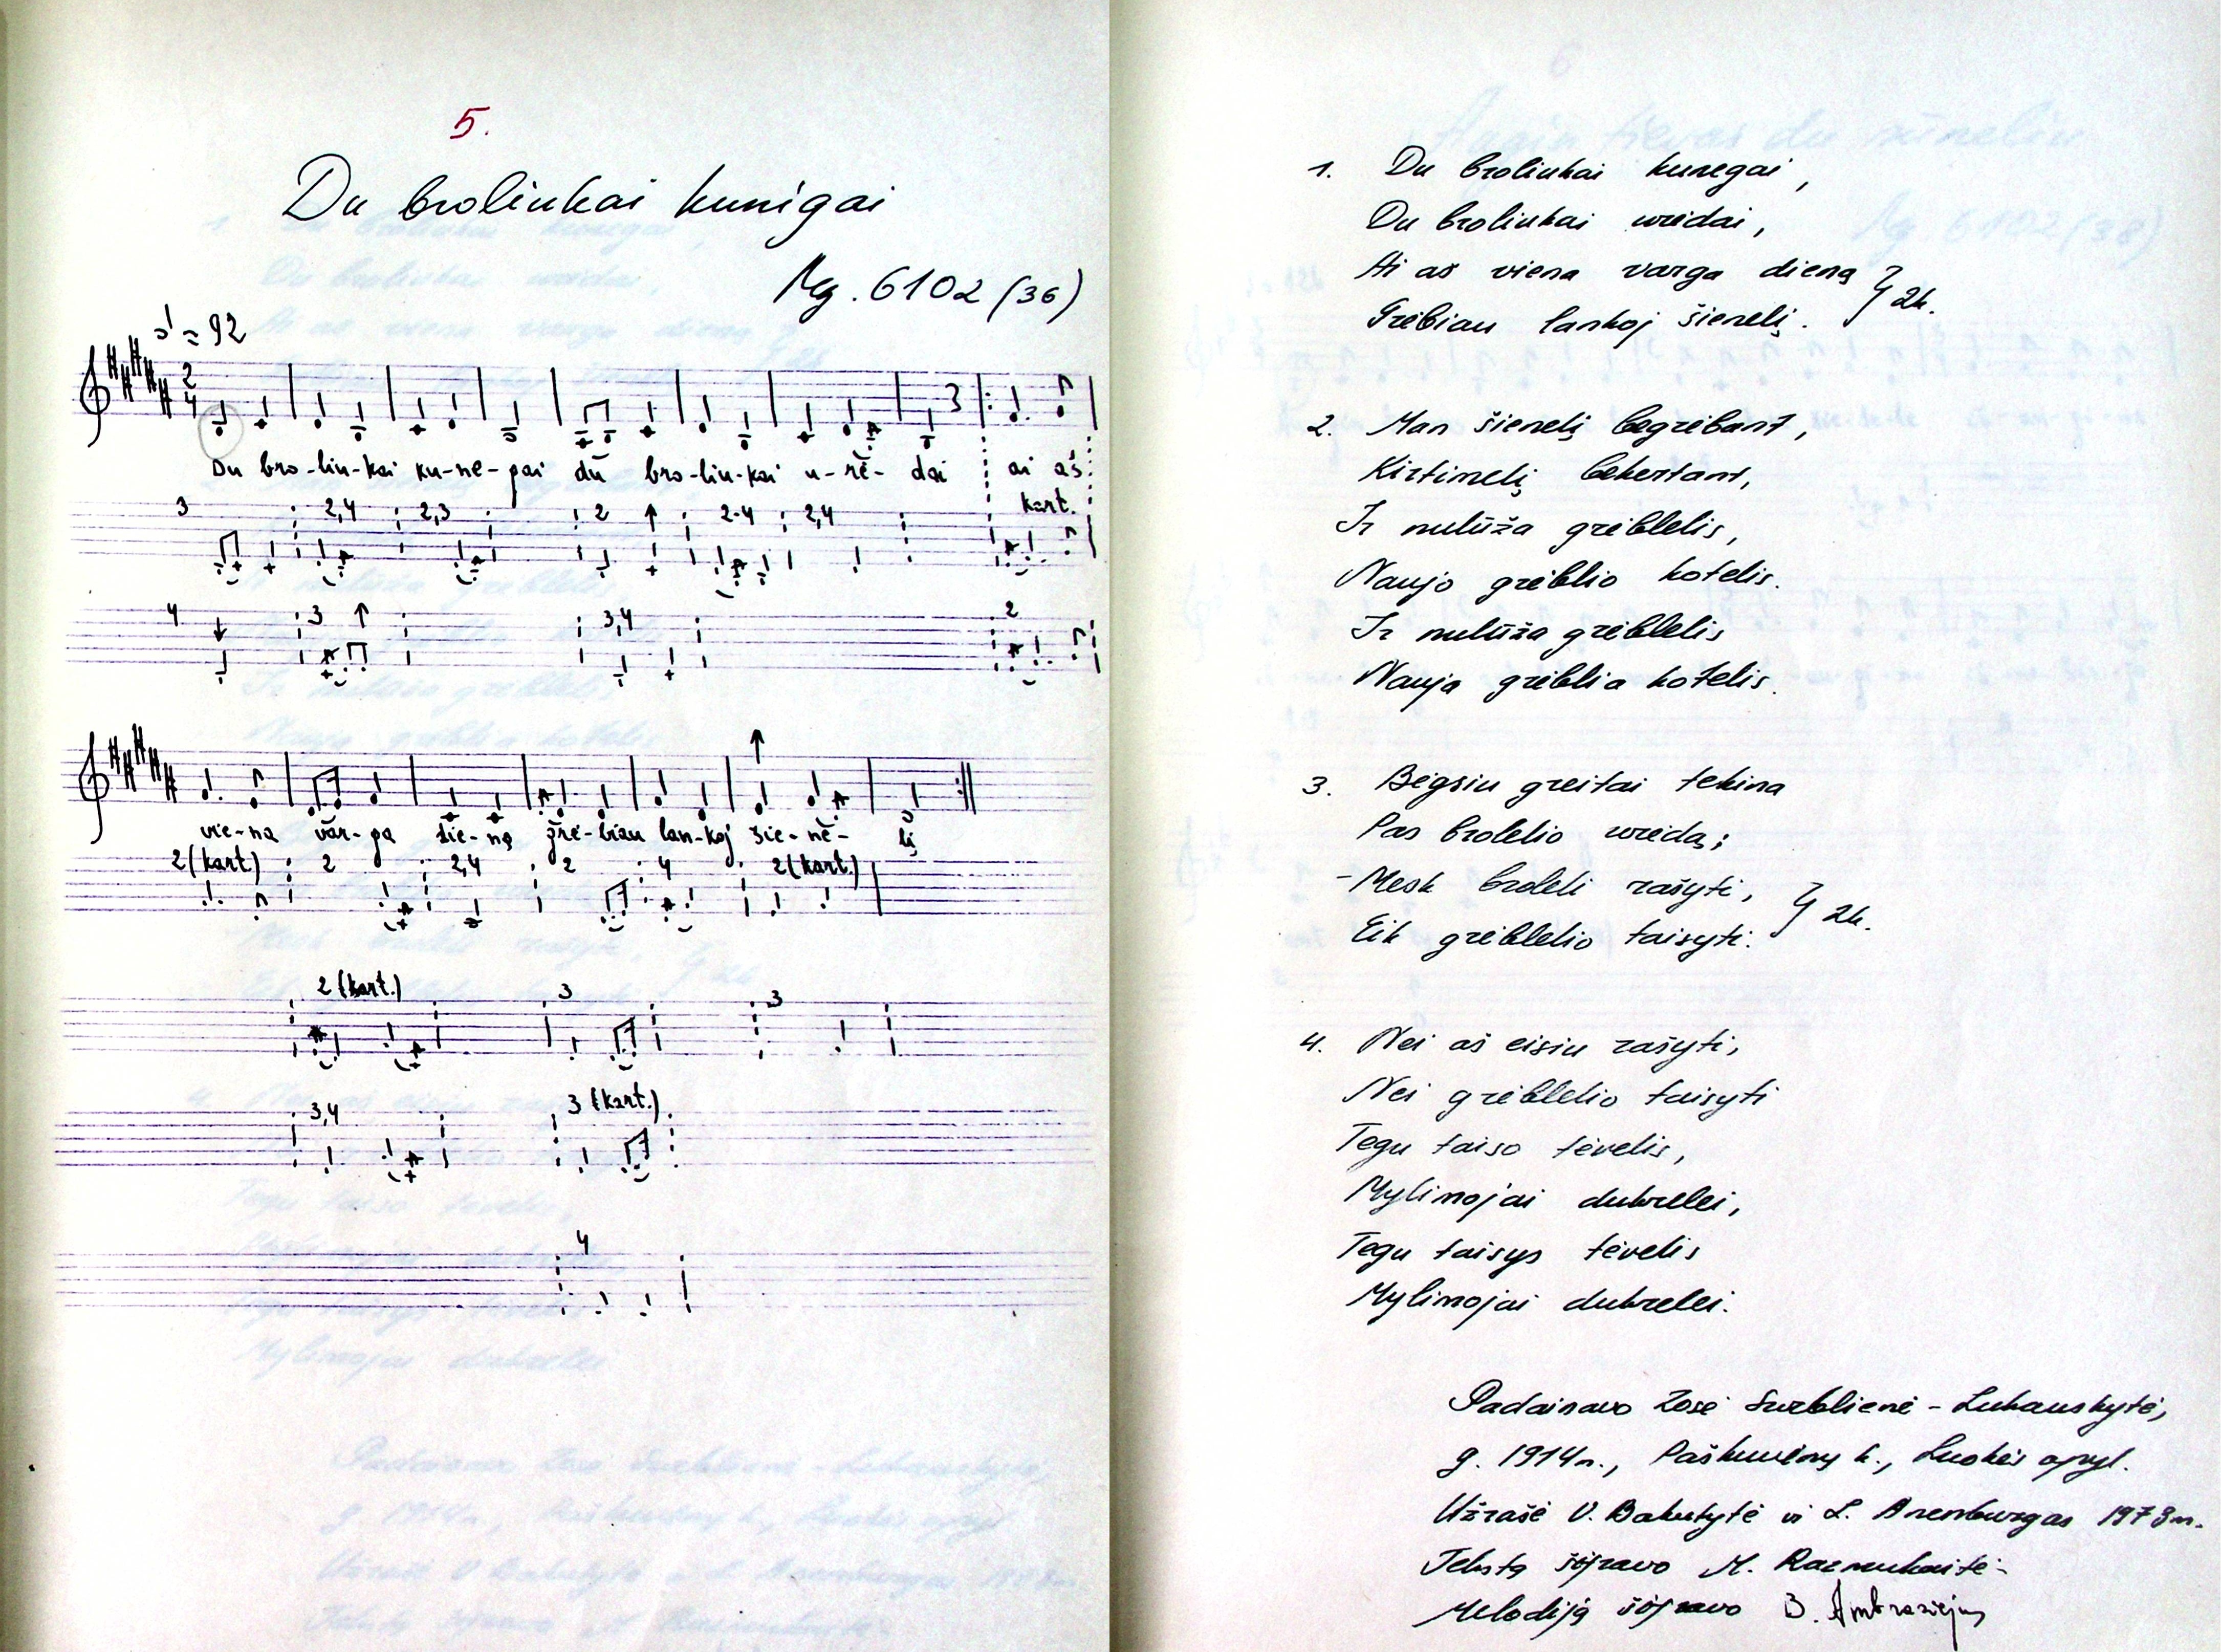 5.
Du broliukai kunigai
Mg. 6102 (36)
♩ = 92
2
4
3
Du bro-liu-kai ku-ne-gai du bro-liu-kai u-rė-dai ai aš
kart.
3 2,4 2,3 2 ↑ 2-4 2,4
4 ↓ 3 ↑ 3,4 2
↑
vie-na var-ga die-ną grė-biau lan-koj šie-nė-lį
2 (kart.) 2 2,4 2 4 2 (kart.)
2 (kart.) 3 3
3,4 3 (kart.)
4
1. Du broliukai kunegai,
Du broliukai uridai,
Ai aš viena varga dieną } 2k.
Grėbiau lankoj šienelį.
2. Man šienelį begrėbant,
Kirtimelį bekertant,
Ir nulūža grėblelis,
Naujo grėblio kotelis.
Ir nulūža grėblelis
Nauja grėblia kotelis.
3. Bėgsiu greitai tekina
Pas brolelio uredą;
- Mesk broleli rašyti, } 2k.
Eik grėblelio taisyti.
4. Nei aš eisiu rašyti,
Nei grėblelio taisyti
Tegu taiso tėvelis,
Mylimojai dukrelei,
Tegu taisys tėvelis
Mylimojai dukrelei.
Padainavo Zosė Surblienė - Lukauskytė,
g. 1914 m., Paškuvėnų k., Luokės apyl.
Užrašė V. Bakutytė ir L. Anenburgas 1973 m.
Tekstą iššifravo M. Razmukaitė
Melodiją iššifravo B. Ambraziejus